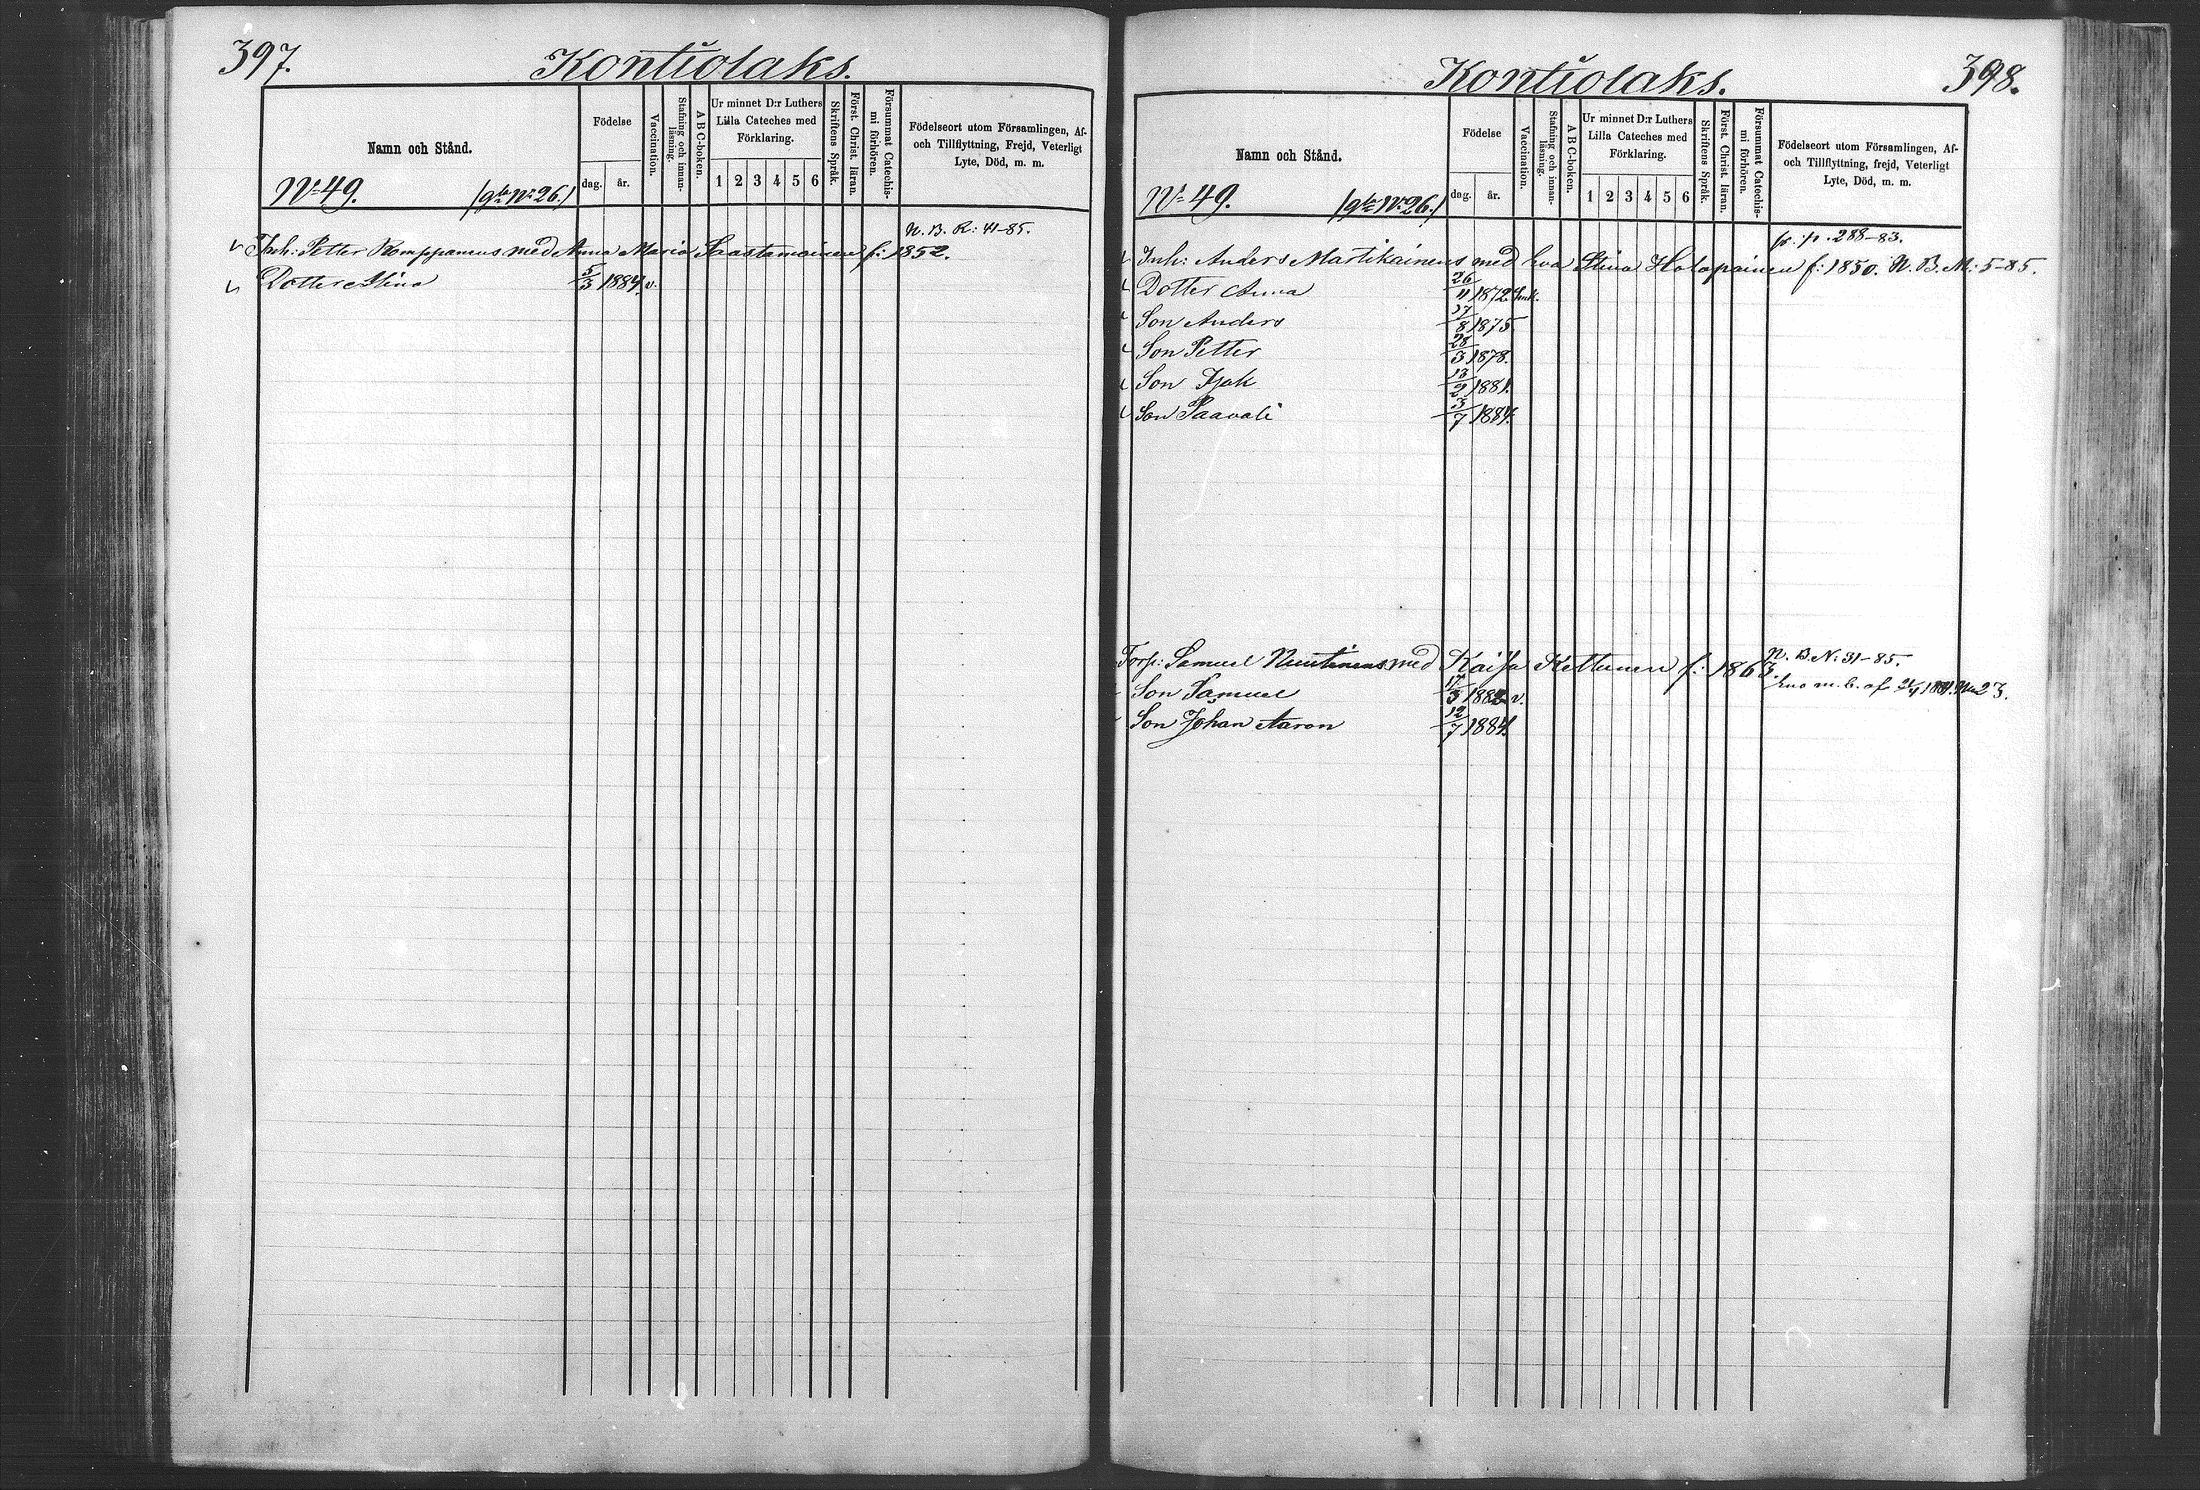 397.
Kontiolaks.
Namn och Stånd.
Födelse
dag. år.
Vaccination.
Stafning och innan-
läsning.
A B C-boken.
Ur minnet D:r Luthers
Lilla Cateches med
Förklaring.
1 2 3 4 5 6
Skriftens Språk.
Först. Christ. läran.
Försummat Catechis-
mi förhören.
Födelseort utom Församlingen, Af-
och Tillflyttning, Frejd, Veterligt
Lyte, Död, m. m.
No 49. /gla No 26./
N. B. R: 41-85.
Inh: Petter Romppanens med Anna Maria Saastamoinen f: 1852.
Dotter Stina 5/3 1884. v.
Kontiolaks.
398.
Namn och Stånd.
Födelse
dag. år.
Vaccination.
Stafning och innan-
läsning.
A B C-boken.
Ur minnet D:r Luthers
Lilla Cateches med
Förklaring.
1 2 3 4 5 6
Skriftens Språk.
Först. Christ. läran.
Försummat Catechis-
mi förhören.
Födelseort utom Församlingen, Af-
och Tillflyttning, frejd, Veterligt
Lyte, Död, m. m.
No 49. /gla No 26./
fr. p. 288-83.
Inh: Anders Martikainens med Eva Stina Holopainen f: 1850. N. B. M: 5-85.
Dotter Anna 26/11 1872.
Son Anders 17/8 1875.
Son Petter 28/3 1878.
Son Isak 13/2 1881.
Son Paavali 3/7 1884.
N. B. N: 31-85.
Torp: Samuel Nuutinens med Kaisa Kettunen f: 1863.
Son Samuel 17/3 1882 v. Eno m. b. af
Son Johan Aaron 12/7 1884.